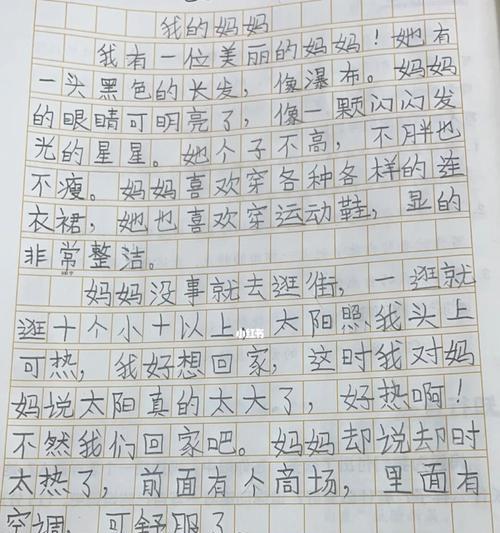 我的妈妈
我有一位美丽的妈妈！她有
一头黑色的长发，像瀑布。妈妈
的眼睛可明亮了，像一颗闪闪发
光的星星。她个子不高，不胖也
不瘦。妈妈喜欢穿各种各样的连
衣裙，她也喜欢穿运动鞋，显的
非常整洁。
妈妈没事就去逛街，一逛就
逛十个小十以上，太阳照我头上
小红书
可热，我好想回家，这时我对妈
妈说太阳真的太大了，好热啊！
不然我们回家吧。妈妈却说却时
太热了，前面有个商场，里面有
空调，可舒服了